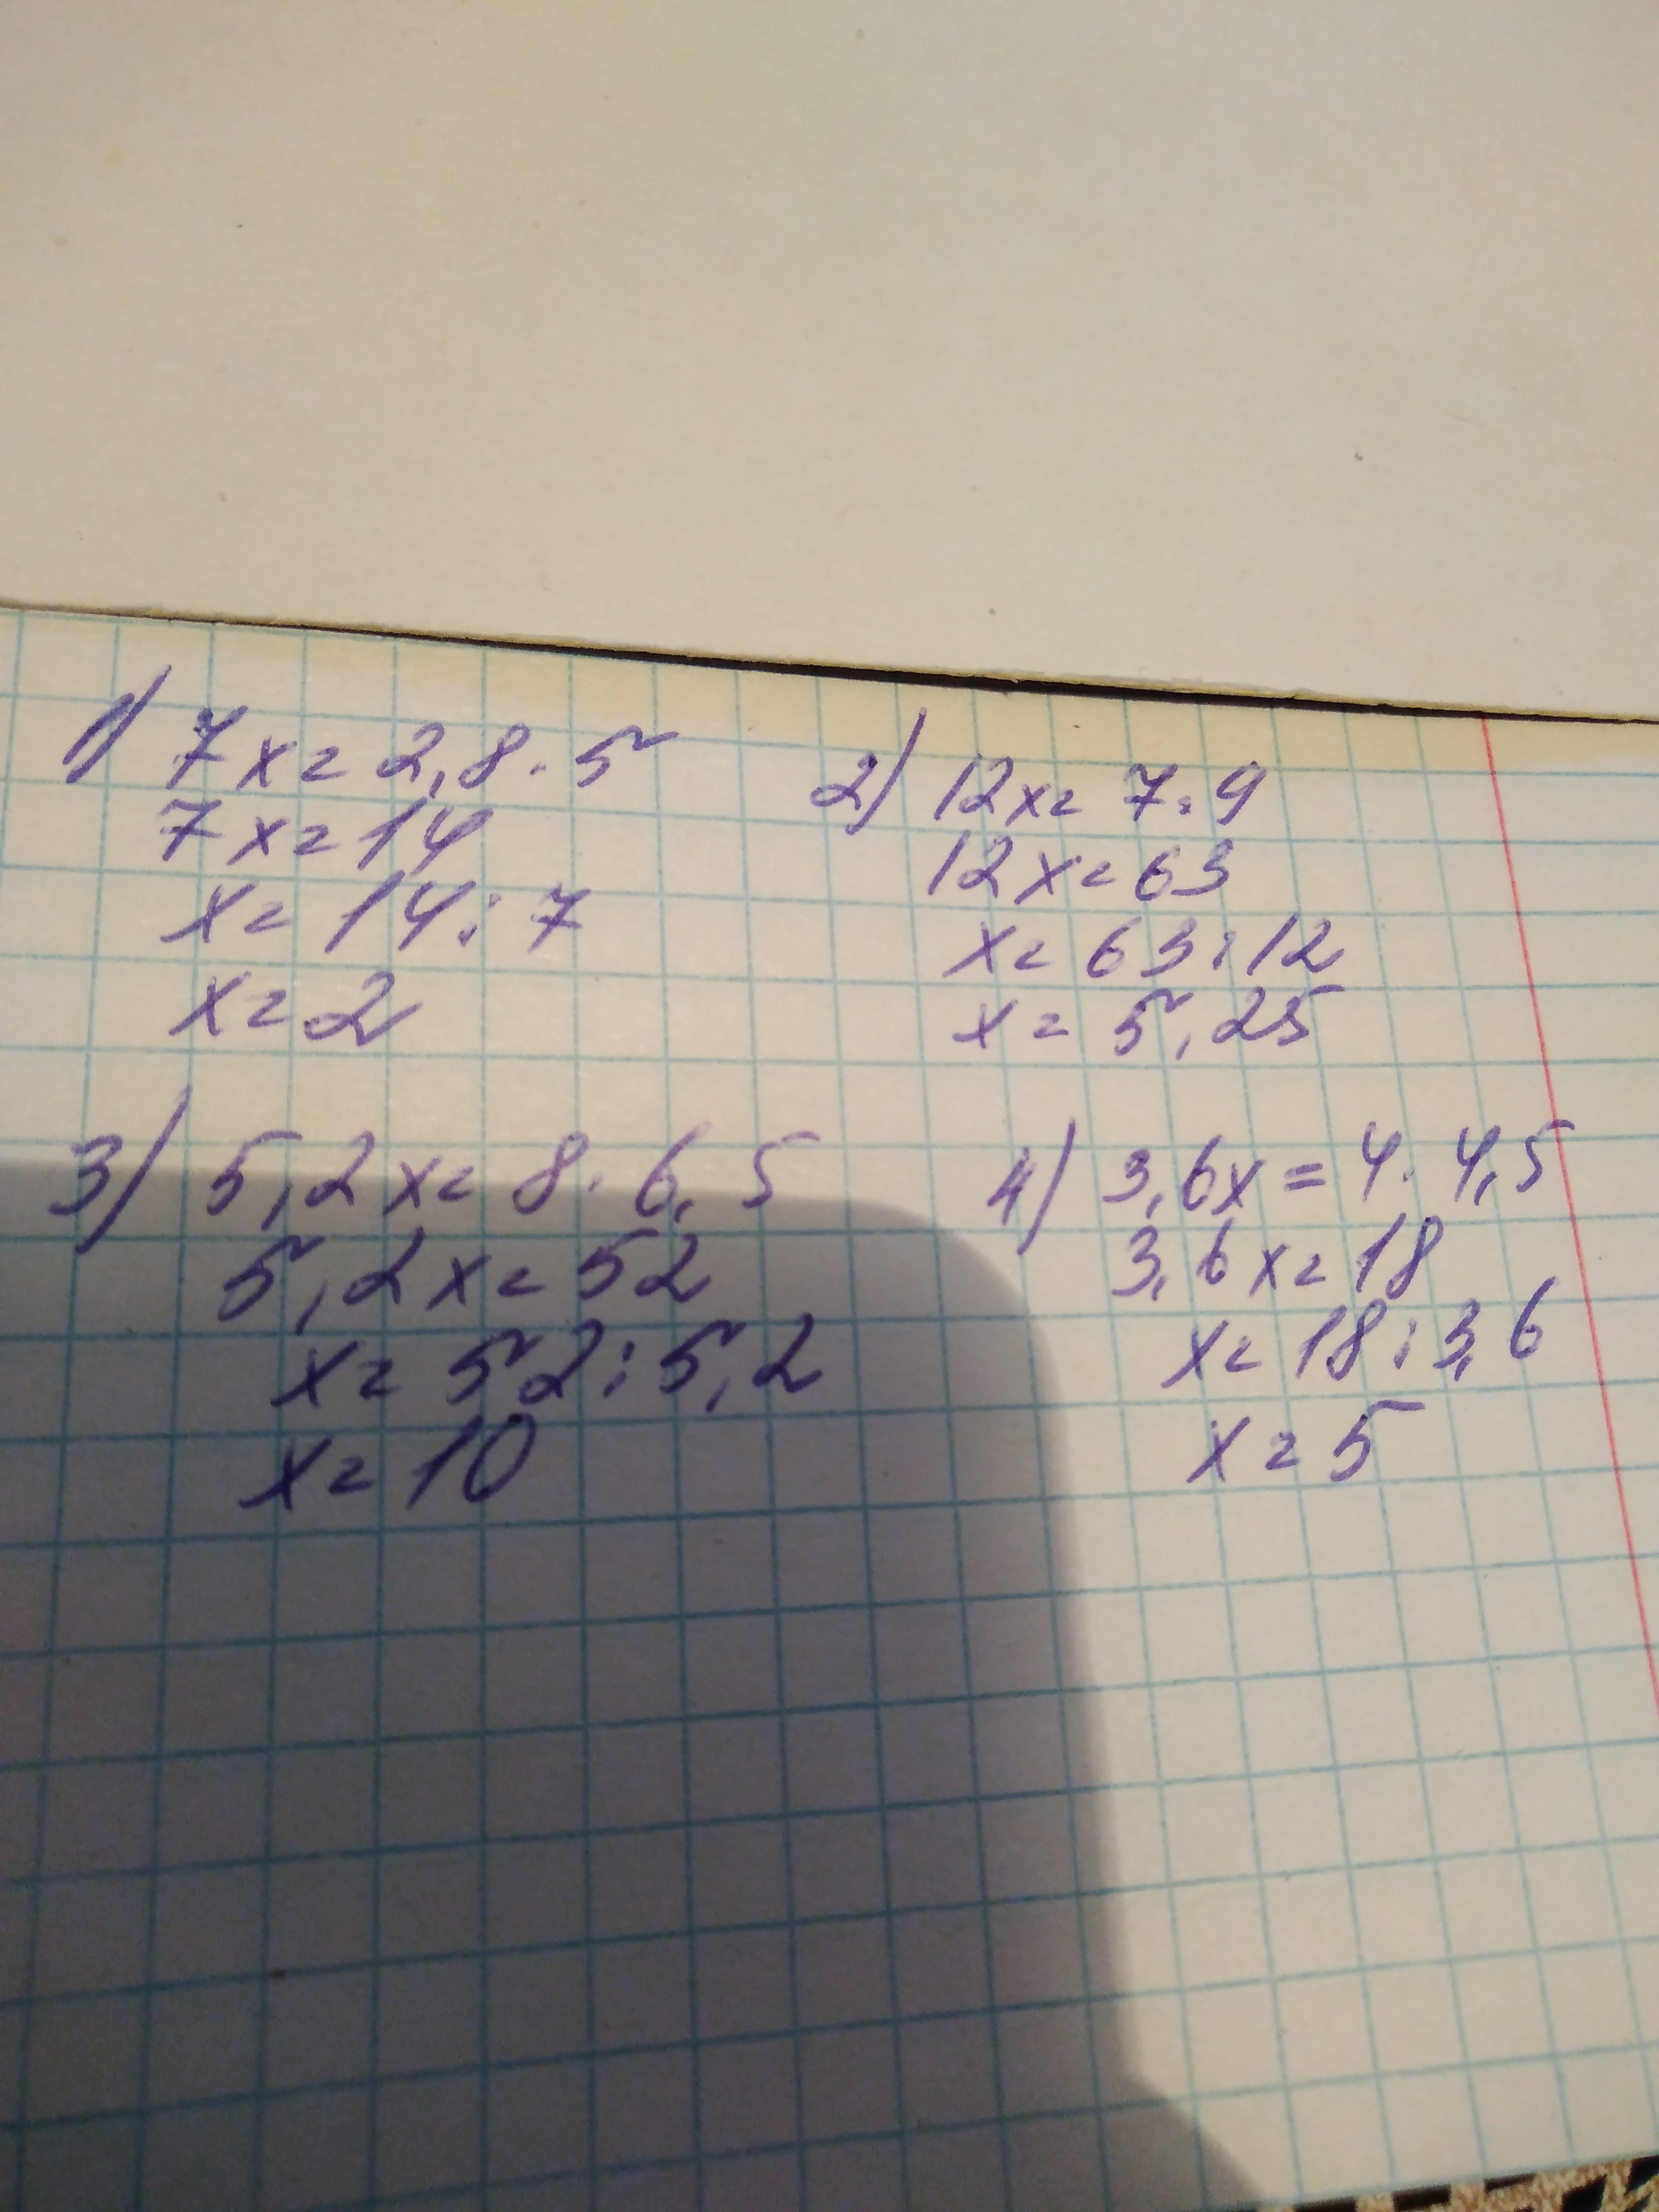 1) 7x = 2,8 · 5
7x = 14
x = 14 : 7
x = 2
2) 12x = 7 · 9
12x = 63
x = 63 : 12
x = 5,25
3) 5,2x = 8 · 6,5
5,2x = 52
x = 52 : 5,2
x = 10
4) 3,6x = 4 · 4,5
3,6x = 18
x = 18 : 3,6
x = 5